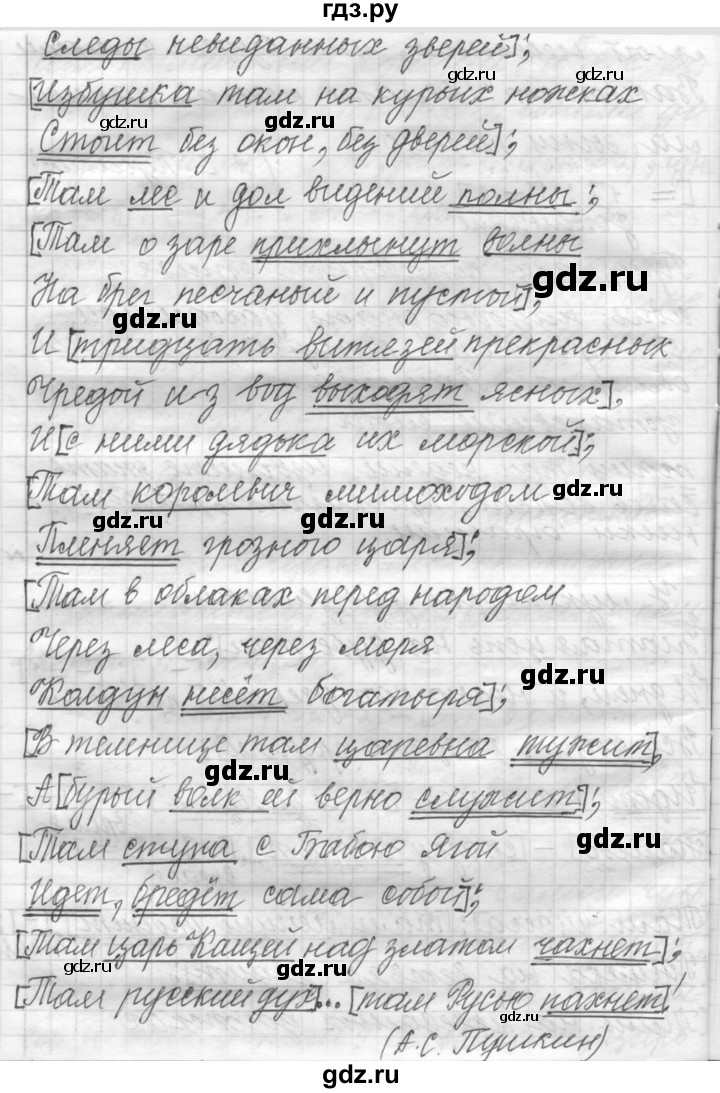 гдз.ру
следы невиданных зверей];
gdz.ru
gdz.ru
[Избушка там на курьих ножках
gdz.ru
gdz.ru
Стоит без окон, без дверей];
[Там лес и дол видений полны;
gdz.ru
gdz.ru
[Там о заре прихлынут волны
gdz.ru
На брег песчаный и пустой],
gdz.ru
И [тридцать витязей прекрасных
Чредой из вод выходят ясных],
И [с ними дядька их морской];
[Там королевич мимоходом
gdz.ru
gdz.ru
gdz.ru
Пленяет грозного царя];
[Там в облаках перед народом
Через леса, через моря
gdz.ru
Колдун несёт богатыря];
[В темнице там царевна тужит],
gdz.ru
А [бурый волк ей верно служит];
gdz.ru
[Там ступа с Бабою Ягой
Идет, бредёт сама собой];
[Там царь Кащей над златом чахнет];
gdz.ru
gdz.ru
gdz.ru
[Там русский дух]... [там Русью пахнет]!
(А.С. Пушкин)
gdz.ru